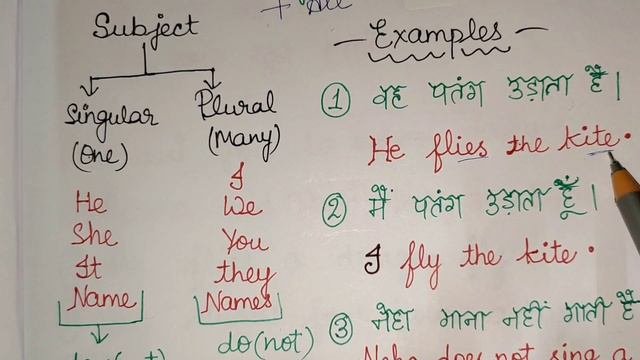 Subject
Singular
(One)
He
She
It
Name
Plural
(Many)
I
We
You
they
Names
do(not)
Examples
① वह पतंग उड़ाता है।
He flies the kite.
② मैं पतंग उड़ाता हूँ।
I fly the kite.
③ नेहा गाना नहीं गाती है
Neha does not sing a